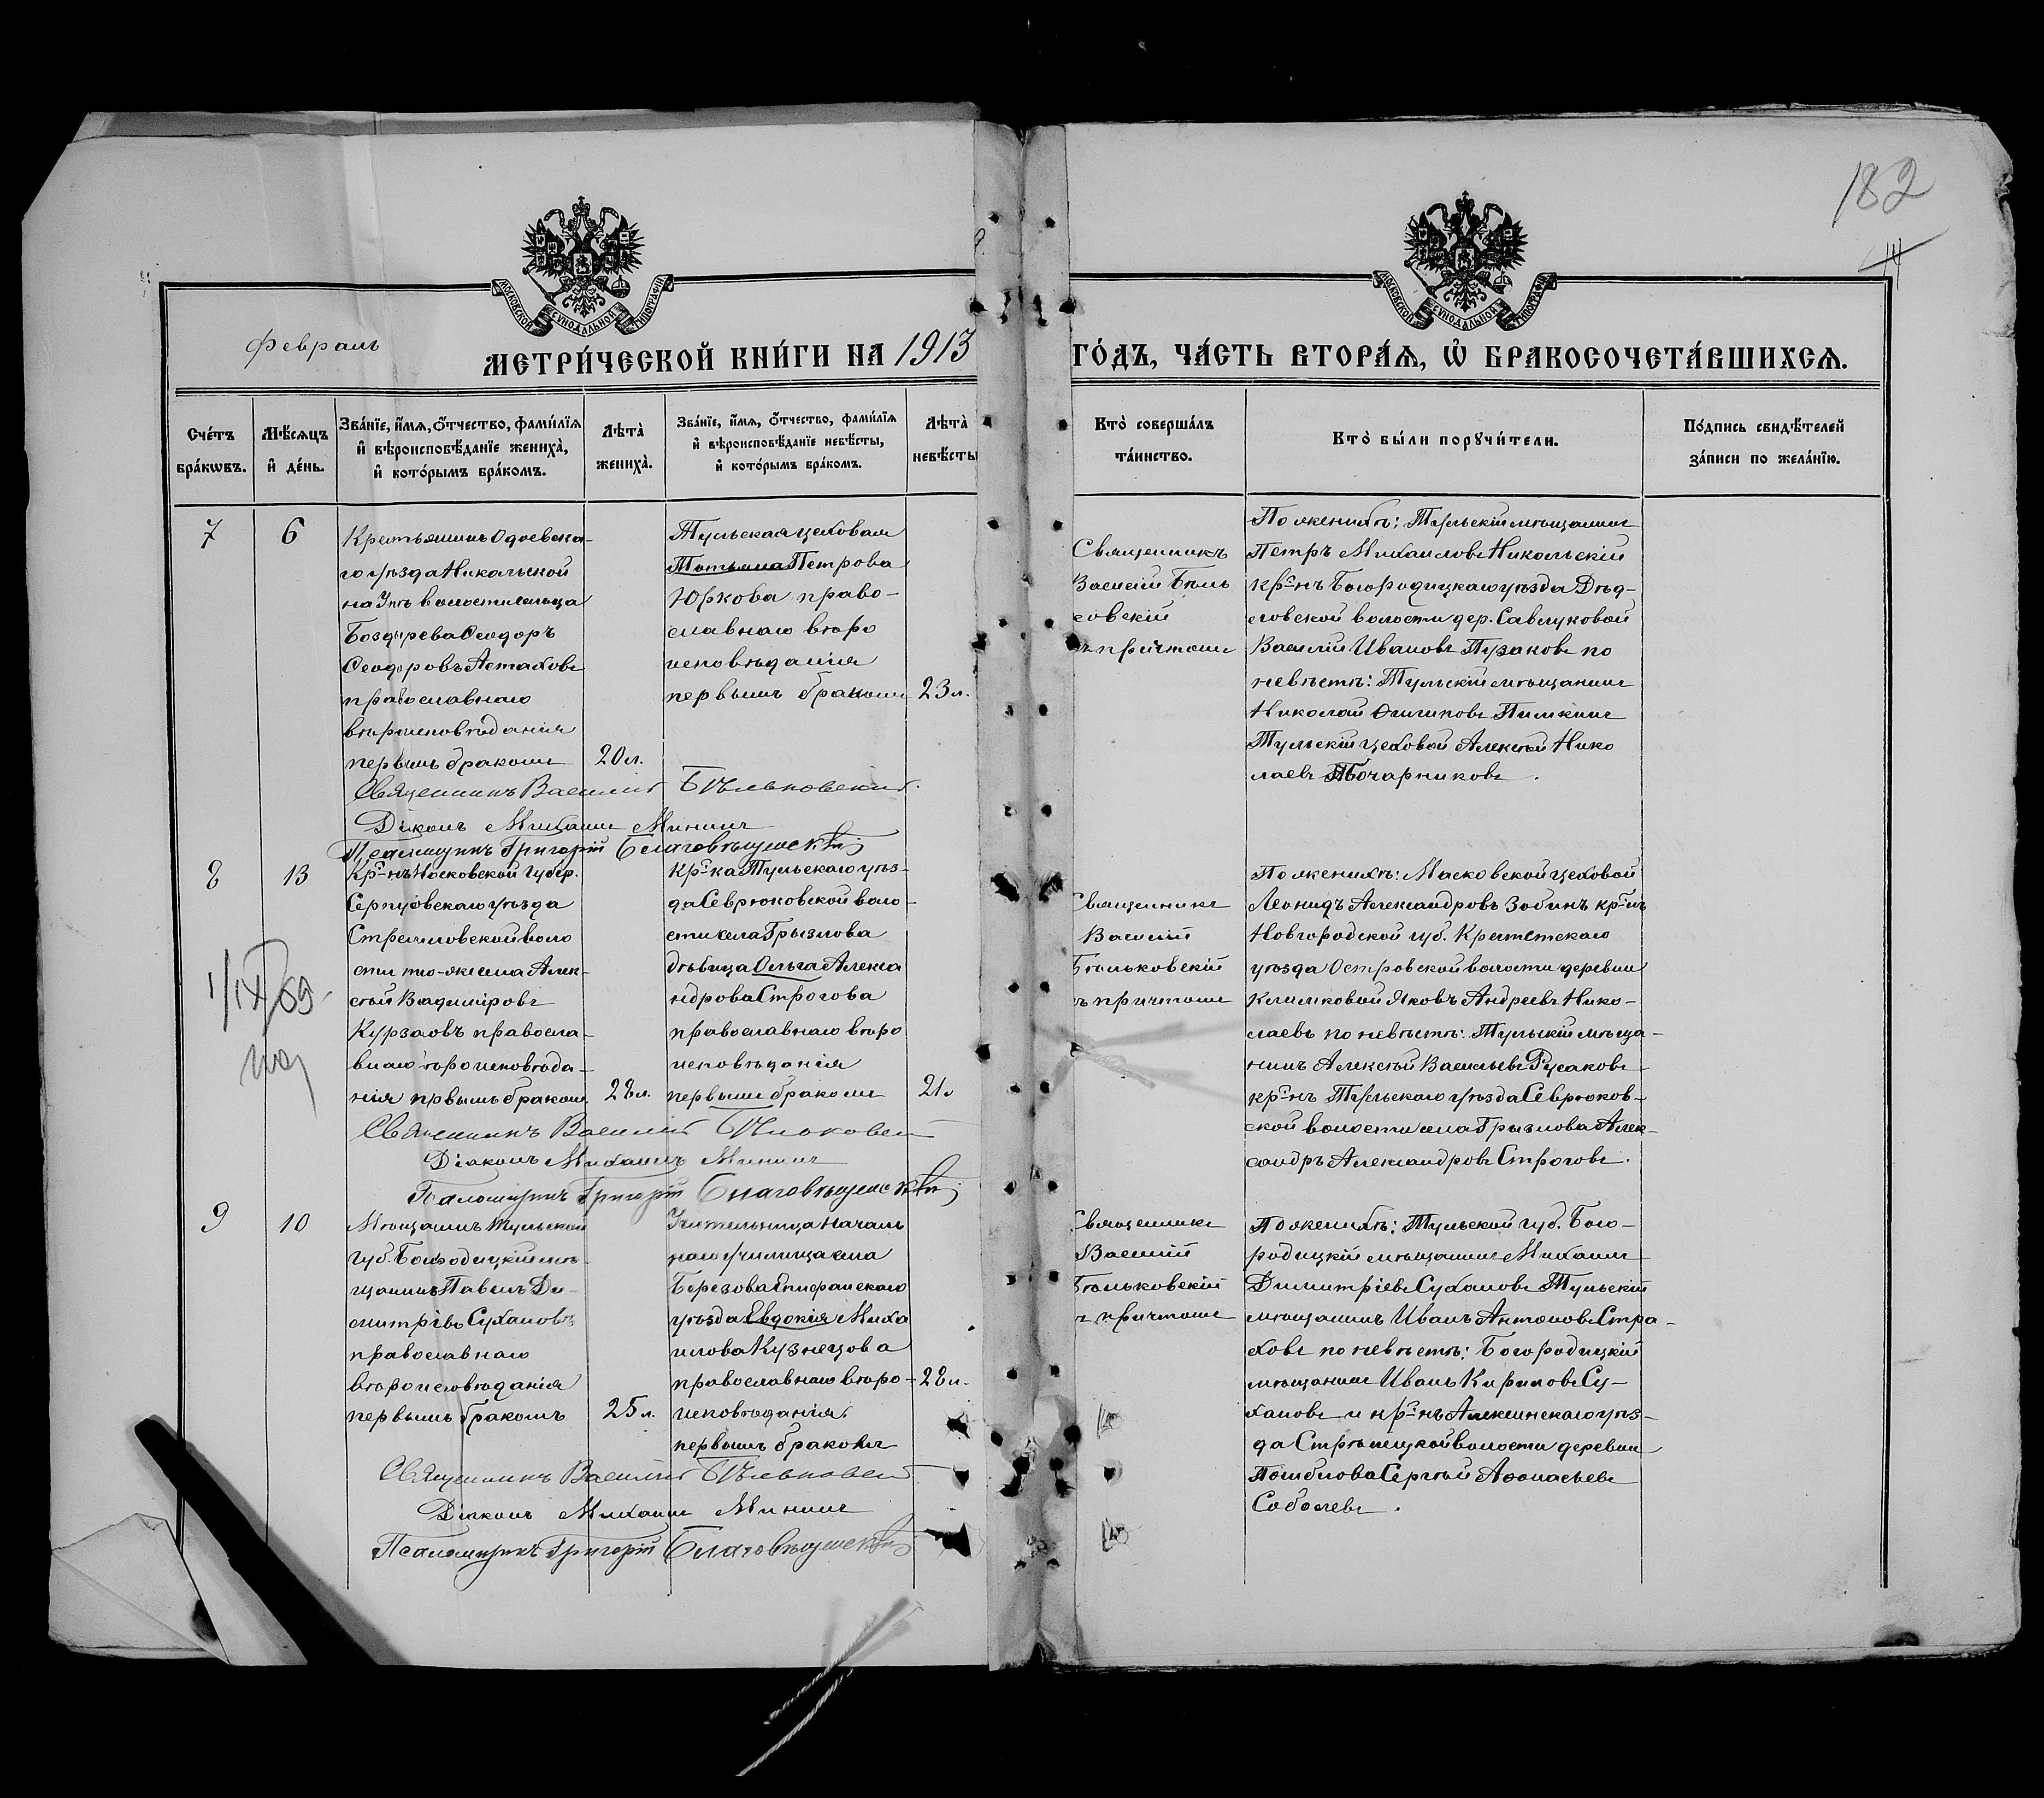 182
МОСКОВСКОЙ СѴНОДАЛЬНОЙ ТИПОГРАФІИ
МОСКОВСКОЙ СѴНОДАЛЬНОЙ ТИПОГРАФІИ
Февраль
МЕТРИ́ЧЕСКОЙ КНИ́ГИ НА 1913 ГО́ДЪ, ЧА́СТЬ ВТОРА́Ѧ, Ѡ҆ БРАКОСОЧЕТА́ВШИХСѦ.
Сче́тъ
бра́кѡвъ.
Мѣ́сѧцъ
и҆ де́нь.
Зва́нїе, и҆́мѧ, ѻ҆́тчество, фами́лїѧ
и҆ вѣроисповѣ́данїе жениха̀,
и҆ кото́рымъ бра́комъ.
Лѣ́та̀
жениха̀.
Зва́нїе, и҆́мѧ, ѻ҆́тчество, фами́лїѧ
и҆ вѣроисповѣ́данїе невѣ́сты,
и҆ кото́рымъ бра́комъ.
Лѣ́та̀
невѣ́сты
Кто̀ соверша́лъ
та́инство.
Кто̀ бы́ли порꙋчи́тели.
По́дпись свидѣ́телей
за́писи по жела́нїю.
7
6
Крестьянинъ Одоевска-
го уѣзда Никольской
на Упѣ волости сельца
Боздырева Ѳеодоръ
Ѳеодоровъ Астаховъ
православнаго
вѣроисповѣданія
первымъ бракомъ
20 л.
Тульская цеховая
Татьяна Петрова
Юркова право-
славнаго вѣро
исповѣданія
первымъ бракомъ
23 л.
Священникъ
Василій Бѣль
ковскій
съ причтомъ
По женихѣ: Тульскій мѣщанинъ
Петръ Михаиловъ Никольскій
кр-нъ Богородицкаго уѣзда Дѣд-
ловской волости дер. Савлуковой
Василій Ивановъ Пузаковъ по
невѣстѣ: Тульскій мѣщанинъ
Николай Филиповъ Пилкинъ
Тульскій цеховой Алексѣй Нико
лаевъ Бочарниковъ.
Священникъ Василій Бѣльковскій.
Діаконъ Михаилъ Мининъ
Псаломщикъ Григорій Благовѣщенскій
8
13
1/IX 69
Кр-нъ Московской губер.
Серпуховскаго уѣзда
Стремиловской воло
сти того-же села Алек-
сѣй Владиміровъ
Курзаовъ правосла-
внаго вѣроисповѣда-
нія первымъ бракомъ
28 л.
Кр-ка Тульскаго уѣз-
да Севрюковской воло-
сти села Грызлова
дѣвица Ольга Алекса
ндрова Строгова
православнаго вѣро
исповѣданія
первымъ бракомъ
21 л
Священникъ
Василій
Бѣльковскій
съ причтомъ
По женихѣ: Масковской цеховой
Леонидъ Александровъ Зобинъ кр-нъ
Новгородской губ. Крестетскаго
уѣзда Островской волости деревни
Климковой Яковъ Андреевъ Нико-
лаевъ по невѣстѣ: Тульскій мѣща-
нинъ Алексѣй Васильевъ Русаковъ
кр-нъ Тульскаго уѣзда Севрюков-
ской волости села Грызлова Алек-
сандръ Александровъ Строговъ.
Священникъ Василій Бѣльковскій
Діаконъ Михаилъ Мининъ
Псаломщикъ Григорій Благовѣщенскій
9
10
Мѣщанинъ Тульской
губ. Богородицкій мѣ-
щанинъ Павелъ Ди-
митріевъ Сухановъ
православнаго
вѣроисповѣданія
первымъ бракомъ
25 л.
Учительница Началь
наго училища села
Березова Епифанскаго
уѣзда Евдокія Миха
илова Кузнецова
православнаго вѣро-
исповѣданія
первымъ бракомъ
28 л.
Священникъ
Василій
Бѣльковскій
съ причтомъ
По женихѣ: Тульской губ. Бого-
родицкій мѣщанинъ Михаилъ
Димитріевъ Сухановъ Тульскій
мѣщанинъ Иванъ Антоновъ Стра-
ховъ по невѣстѣ: Богородицкій
мѣщанинъ Иванъ Кириловъ Су-
хановъ и кр-нъ Алексинскаго уѣз-
да Стрѣлецкой волости деревни
Сергѣй Аѳанасьевъ
Соболевъ.
Священникъ Василій Бѣльковскій
Діаконъ Михаилъ Мининъ
Псаломщикъ Григорій Благовѣщенскій